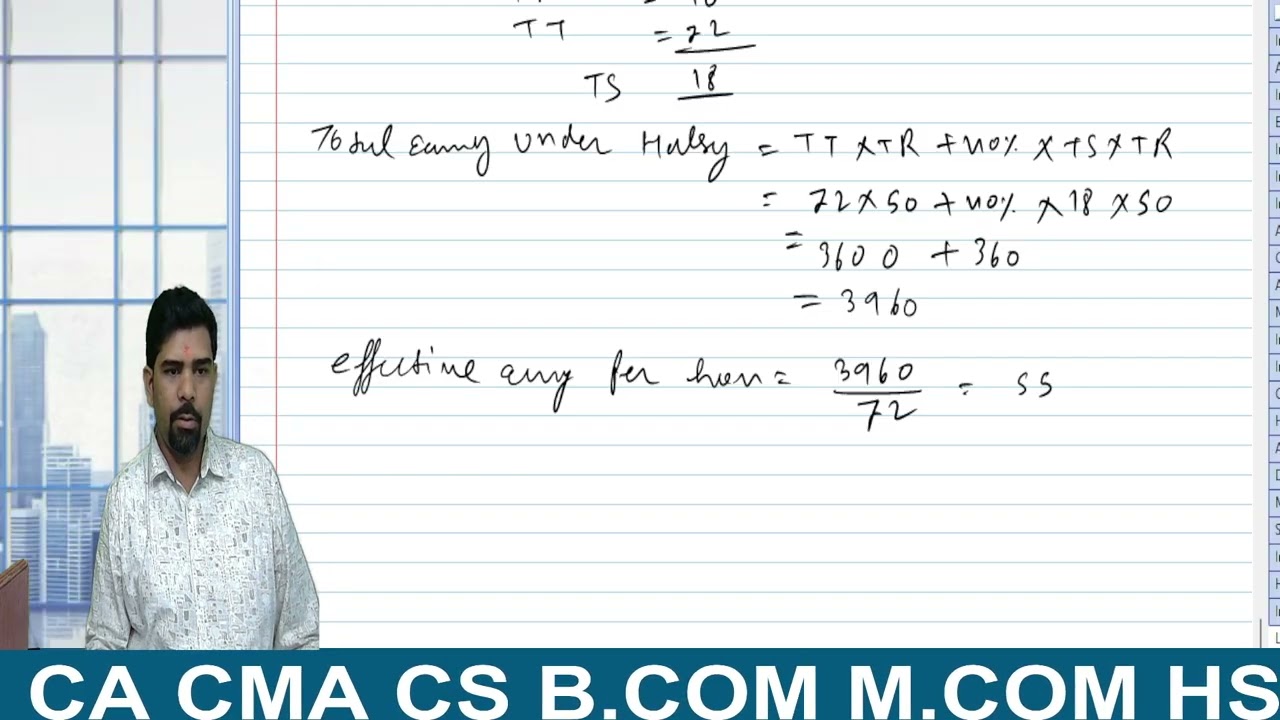 TT = 72
TS 18
Total earny under Halsy = TT X TR + 40% X TS X TR
= 72 X 50 + 40% X 18 X 50
= 3600 + 360
= 3960
effective erny per hour = 3960 / 72 = 55
CA CMA CS B.COM M.COM HS